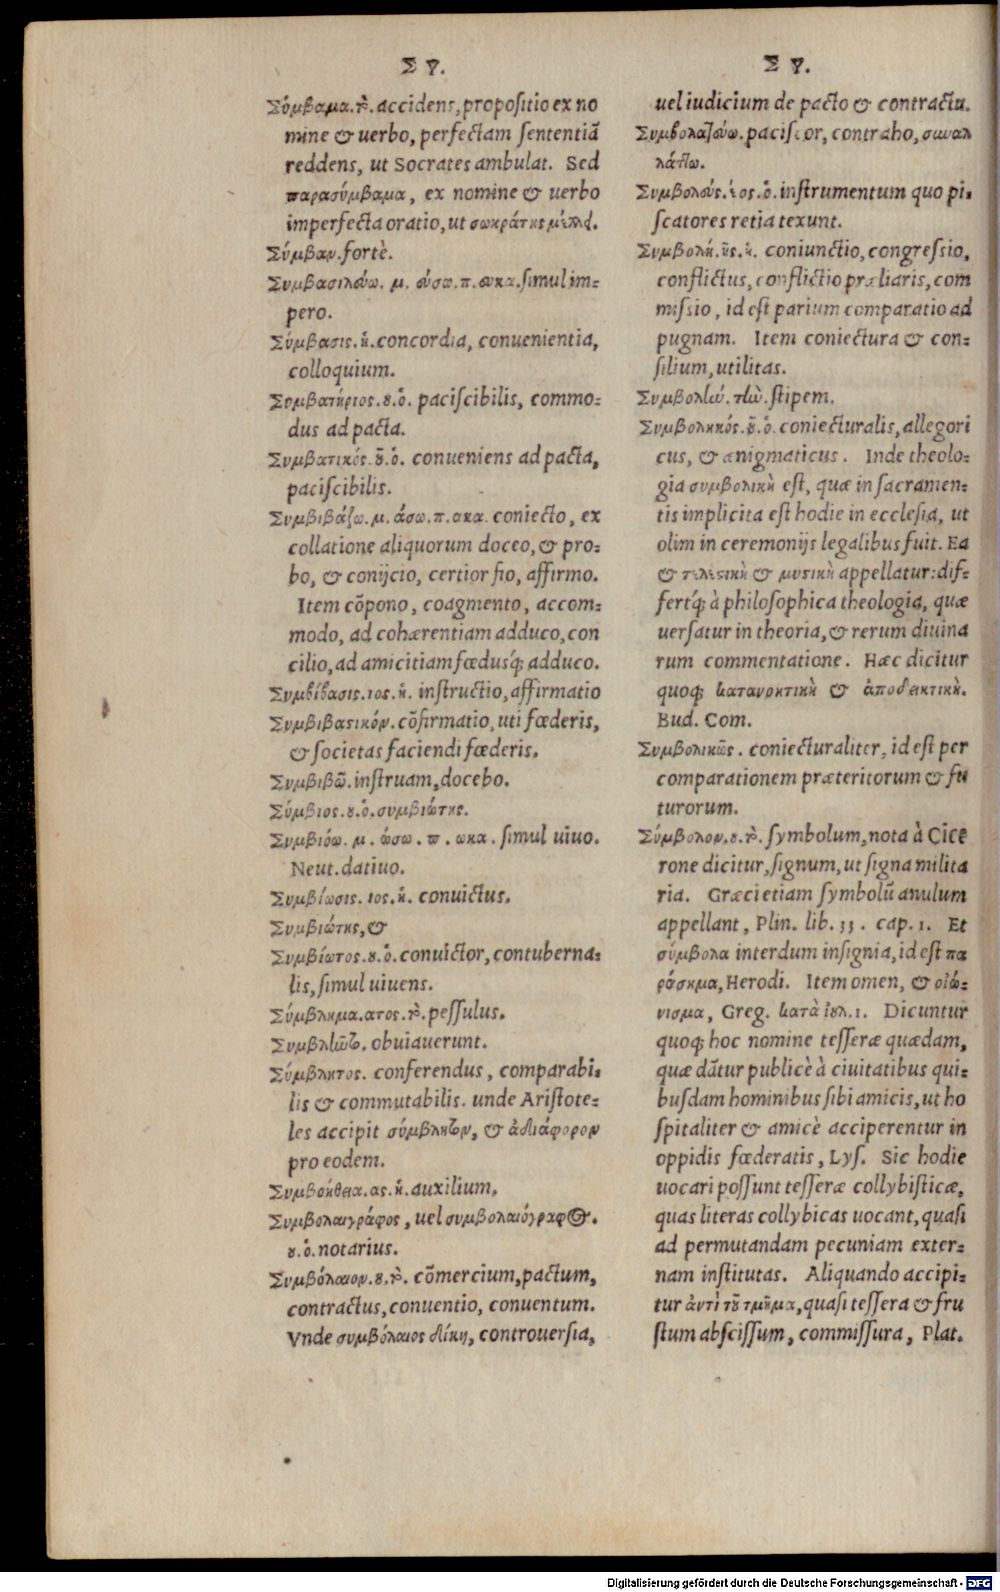 Σ υ.
Σύμβαμα. τὸ. accidens, propositio ex no
mine & uerbo, perfectam sententiã
reddens, ut Socrates ambulat. Sed
παρασύμβαμα, ex nomine & uerbo
imperfecta oratio, ut σωκράτης μέλει.
Σύμβαν. fortè.
Συμβασιλεύω. μ. εύσω. π. ευκα. simul im-
pero.
Σύμβασις. ἡ. concordia, conuenientia,
colloquium.
Συμβατήριος. ου. ὁ. paciscibilis, commo-
dus ad pacta.
Συμβατικός. οῦ. ὁ. conueniens ad pacta,
paciscibilis.
Συμβιβάζω. μ. άσω. π. ακα. coniecto, ex
collatione aliquorum doceo, & pro-
bo, & conijcio, certior fio, affirmo.
Item cõpono, coagmento, accom-
modo, ad cohærentiam adduco, con
cilio, ad amicitiam fœdusq́; adduco.
Συμβίβασις. ιος. ἡ. instructio, affirmatio
Συμβιβασικόν. cõfirmatio, uti fœderis,
& societas faciendi fœderis.
Συμβιβῶ. instruam, docebo.
Σύμβιος. ου. ὁ. συμβιώτης.
Συμβιόω. μ. ώσω. π. ωκα. simul uiuo.
Neut. datiuo.
Συμβίωσις. ιος. ἡ. conuictus.
Συμβιώτης, &
Συμβίωτος. ου. ὁ. conuictor, contuberna-
lis, simul uiuens.
Σύμβλημα. ατος. τὸ. pessulus.
Συμβλῆντο. obuiauerunt.
Σύμβλητος. conferendus, comparabi-
lis & commutabilis. unde Aristote-
les accipit σύμβλητον, & ἀδιάφορον
pro eodem.
Συμβοήθεια. ας. ἡ. auxilium.
Συμβολαιγράφος, uel συμβολαιόγραφος.
ου. ὁ. notarius.
Συμβόλαιον. ου. τὸ. cõmercium, pactum,
contractus, conuentio, conuentum.
Vnde συμβόλαιος δίκη, controuersia,
Σ υ.
uel iudicium de pacto & contractu.
Συμβολαζεύω. paciscor, contraho, συναλ
λάττω.
Συμβολεύς. έος. ὁ. instrumentum quo pi-
scatores retia texunt.
Συμβολή. ῆς. ἡ. coniunctio, congressio,
conflictus, conflictio præliaris, com
missio, id est parium comparatio ad
pugnam. Item coniectura & con-
silium, utilitas.
Συμβολήν. τὴν. stipem.
Συμβοληκός. οῦ. ὁ. coniecturalis, allegori
cus, & ænigmaticus. Inde theolo-
gia συμβολικὴ est, quæ in sacramen-
tis implicita est hodie in ecclesia, ut
olim in ceremonijs legalibus fuit. Ea
& τελεστικὴ & μυστικὴ appellatur: dif-
fertq́; à philosophica theologia, quæ
uersatur in theoria, & rerum diuina
rum commentatione. Hæc dicitur
quoq; κατανοκτικὴ & ἀποδεικτικὴ.
Bud. Com.
Συμβολικῶς. coniecturaliter, id est per
comparationem præteritorum & fu
turorum.
Σύμβολον. ου. τὸ. symbolum, nota à Cice
rone dicitur, signum, ut signa milita
ria. Græci etiam symbolũ anulum
appellant, Plin. lib. 33. cap. 1. Et
σύμβολα interdum insignia, id est πα
ράσημα, Herodi. Item omen, & οἰώ-
νισμα, Greg. κατὰ ἰουλ. 1. Dicuntur
quoq; hoc nomine tesseræ quædam,
quæ dãtur publicè à ciuitatibus qui-
busdam hominibus sibi amicis, ut ho
spitaliter & amicè acciperentur in
oppidis fœderatis, Lys. Sic hodie
uocari possunt tesseræ collybisticæ,
quas literas collybicas uocant, quasi
ad permutandam pecuniam exter-
nam institutas. Aliquando accipi-
tur ἀντὶ τοῦ τμῆμα, quasi tessera & fru
stum abscissum, commissura, Plat.
Digitalisierung gefördert durch die Deutsche Forschungsgemeinschaft - DFG